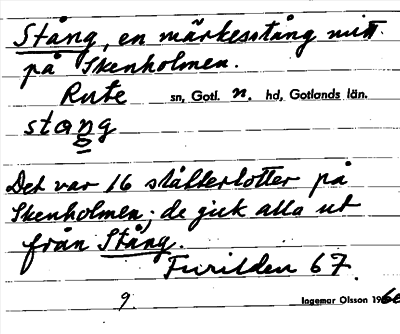 Stång, en märkesstång mitt
på Skenholmen.
Rute sn, Gotl. n. hd, Gotlands län.
staŋg
Det var 16 slåtterlotter på
Skenholmen; de gick alla ut
från Stång.
Furilden 67.
9. Ingemar Olsson 1966